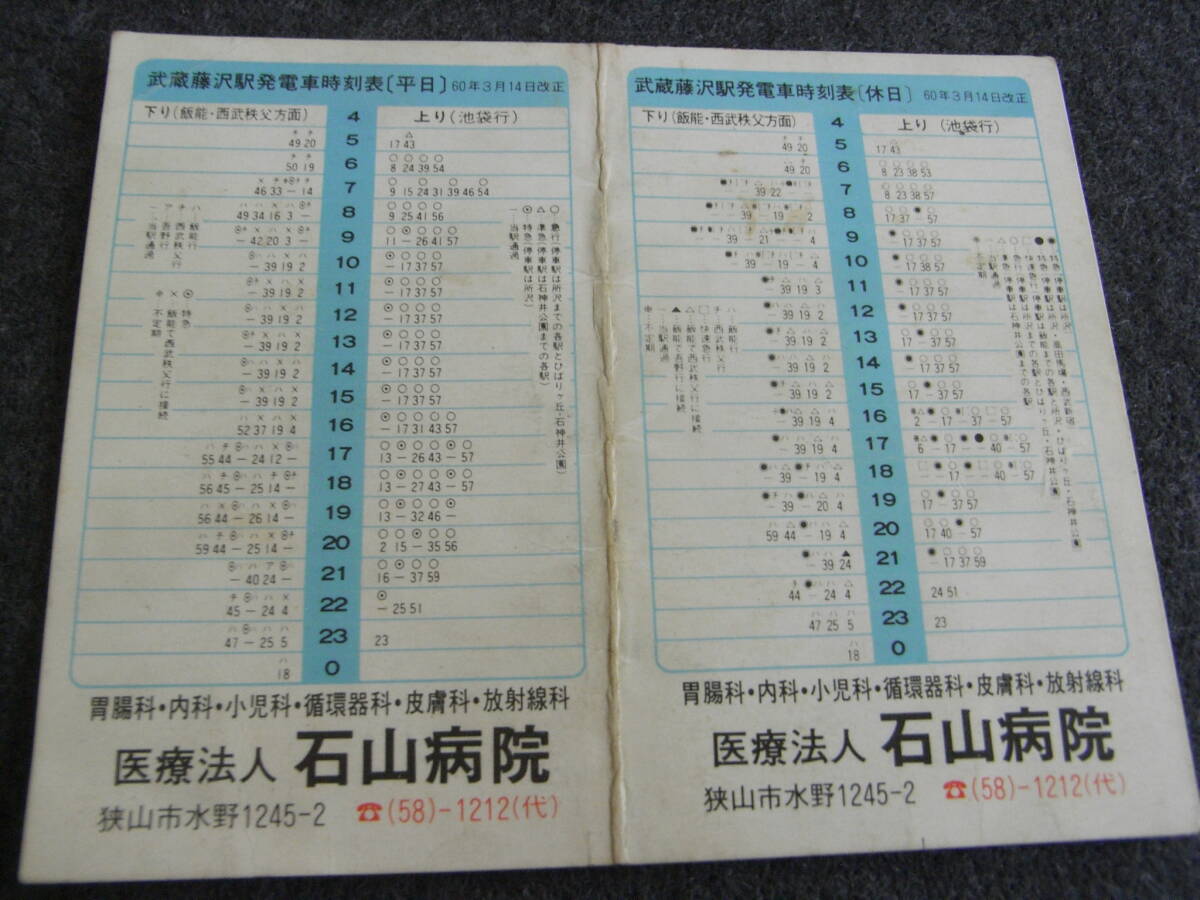 武蔵藤沢駅発電車時刻表〔平日〕 60年3月14日改正
下り(飯能・西武秩父方面) 4 上り(池袋行)
49 20 5 17 43
50 19 6 8 24 39 54
46 33 － 14 7 9 15 24 31 39 46 54
49 34 16 3 － 8 9 25 41 56
－ 42 20 3 － 9 11 － 26 41 57
－ 39 19 2 10 － 17 37 57
－ 39 19 2 11 － 17 37 57
－ 39 19 2 12 － 17 37 57
－ 39 19 2 13 － 17 37 57
－ 39 19 2 14 － 17 37 57
－ 39 19 2 15 － 17 37 57
52 37 19 4 16 － 17 31 43 57
55 44 － 24 12 － 17 13 － 26 43 － 57
56 45 － 25 14 － 18 13 － 27 43 － 57
56 44 － 26 14 － 19 13 － 32 46 －
59 44 － 25 14 － 20 2 15 － 35 56
－ 40 24 － 21 16 － 37 59
45 － 24 4 22 － 25 51
47 － 25 5 23 23
18 0
ハ…飯能行
チ…西武秩父行
ア…吾野行
－…当駅通過
◉…特急
×…飯能で西武秩父行に接続
※…不定期
○…急行(停車駅は所沢までの各駅とひばりヶ丘・石神井公園)
△…準急(停車駅は石神井公園までの各駅)
◉…特急(停車駅は所沢)
－…当駅通過
胃腸科・内科・小児科・循環器科・皮膚科・放射線科
医療法人 石山病院
狭山市水野1245-2 ☎(58)-1212(代)
武蔵藤沢駅発電車時刻表〔休日〕 60年3月14日改正
下り(飯能・西武秩父方面) 4 上り(池袋行)
49 20 5 17 43
49 20 6 8 23 38 53
－ 39 22 － － 7 8 23 40 57
－ 39 － 19 － 2 8 17 37 － 57
－ 39 － 21 － － 4 9 － 17 37 57
－ 39 － 19 － 4 10 － 17 38 57
－ 39 19 3 11 － 17 37 57
－ 39 19 2 12 － 17 37 57
－ 39 19 2 13 17 － 37 57
－ 39 19 2 14 － 17 37 57
－ 39 19 2 15 17 － 37 57
－ 39 19 4 16 2 － 17 － 37 － 57
－ 39 19 4 17 6 － 17 － － 40 － 57
－ 39 － 19 4 18 － 17 － － 40 － 57
－ 39 － 20 4 19 17 － 37 57
59 44 － 19 4 20 17 40 － 57
－ 39 24 21 － 17 37 59
44 － 24 4 22 24 51
47 25 5 23 23
18 0
ハ…飯能行
チ…西武秩父行
□…快速急行
△…飯能で西武秩父行に接続
▲…飯能で吾野行に接続
－…当駅通過
※…不定期
胃腸科・内科・小児科・循環器科・皮膚科・放射線科
医療法人 石山病院
狭山市水野1245-2 ☎(58)-1212(代)